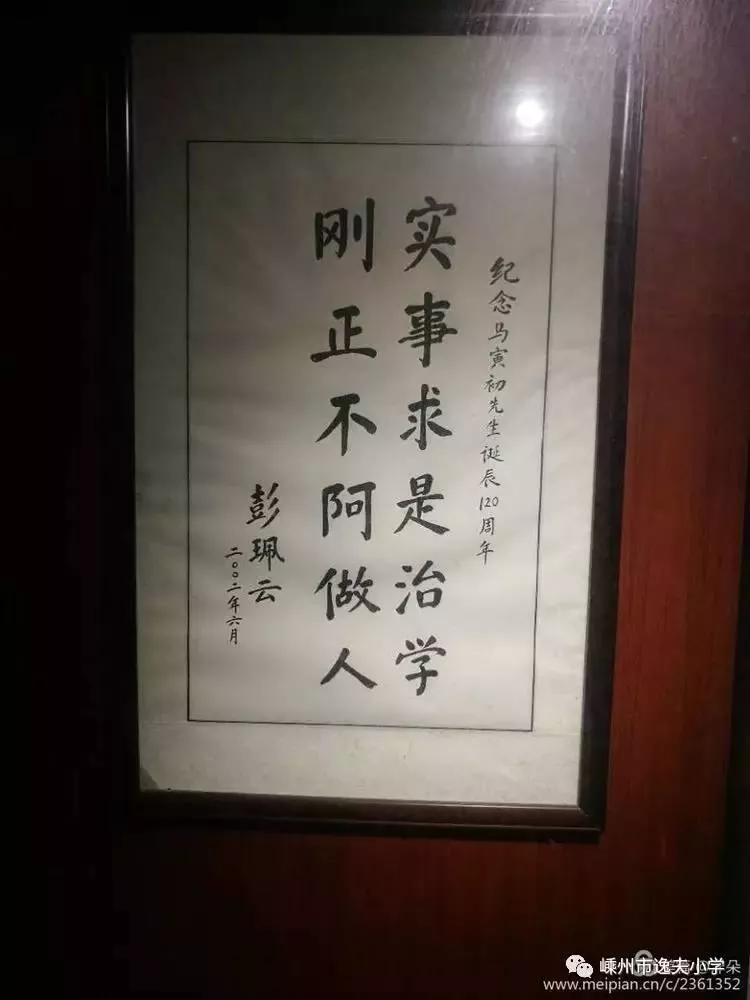 纪念马寅初先生诞辰120周年
实事求是治学
刚正不阿做人
彭珮云
二〇〇二年六月
嵊州市逸夫小学
www.meipian.cn/c/2361352